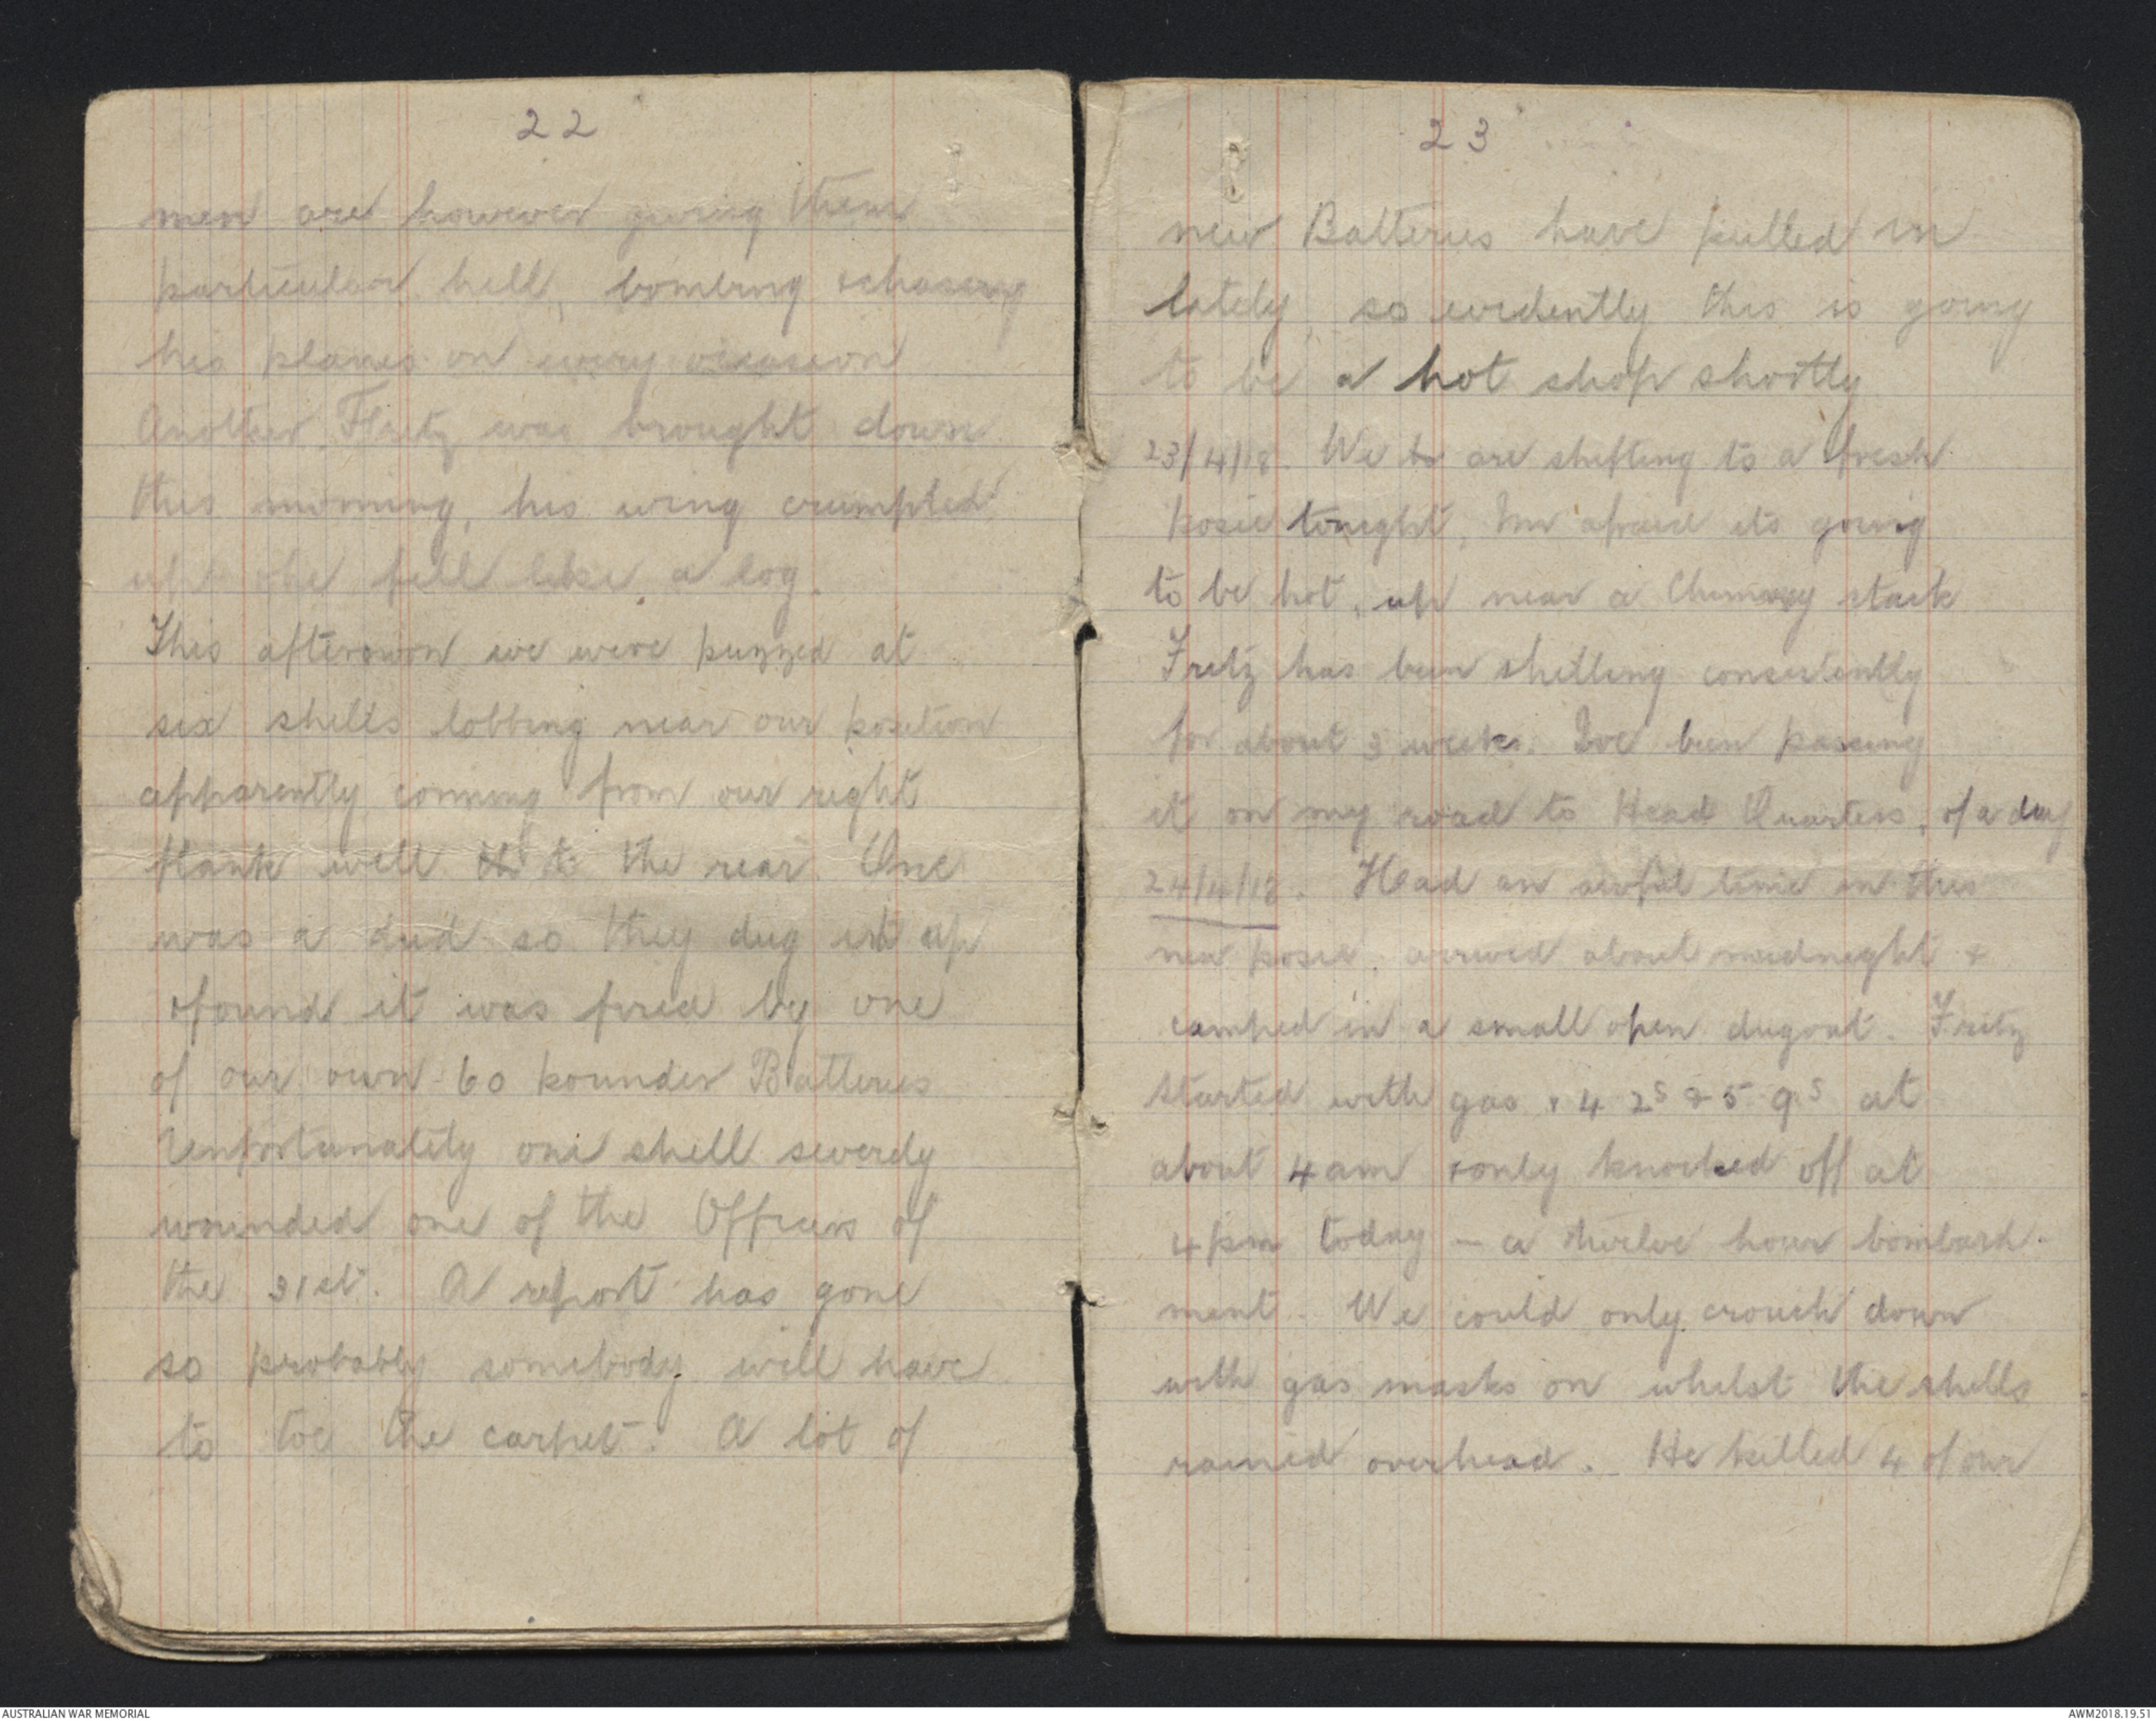 22
men are however giving them
particular hell, bombing & chasing
his planes on every occasion
Another Fritz was brought down
this morning, his wing crumpled
up & he fell like a log.
This afternoon we were puzzled at
six shells lobbing near our position
apparently comming from our right
flank well to the rear. One
was a dud so they dug it up
& found it was fired by one
of our own 60 pounder Batteries
Unfortunately one shell severely
wounded one of the Officers of
the 31st. A report has gone
so probably somebody will have
to toe the carpet. A lot of
23
new Batteries have pulled in
lately, so evidently this is going
to be a hot shop shortly
23/4/18. We are shifting to a fresh
posie tonight, Im afraid its going
to be hot, up near a Chimney stack
Fritz has been shelling consistently
for about 3 weeks. Ive been passing
it on my road to Head Quarters, of a day
24/4/18. Had an awful time in this
new posie, arrived about midnight &
camped in a small open dugout. Fritz
started with gas & 4 2s & 5 9s at
about 4 am & only knocked off at
4 pm today – a twelve hour bombard-
ment. We could only crouch down
with gas masks on whilst the shells
rained overhead. He killed 4 of our
AUSTRALIAN WAR MEMORIAL
AWM2018.19.51